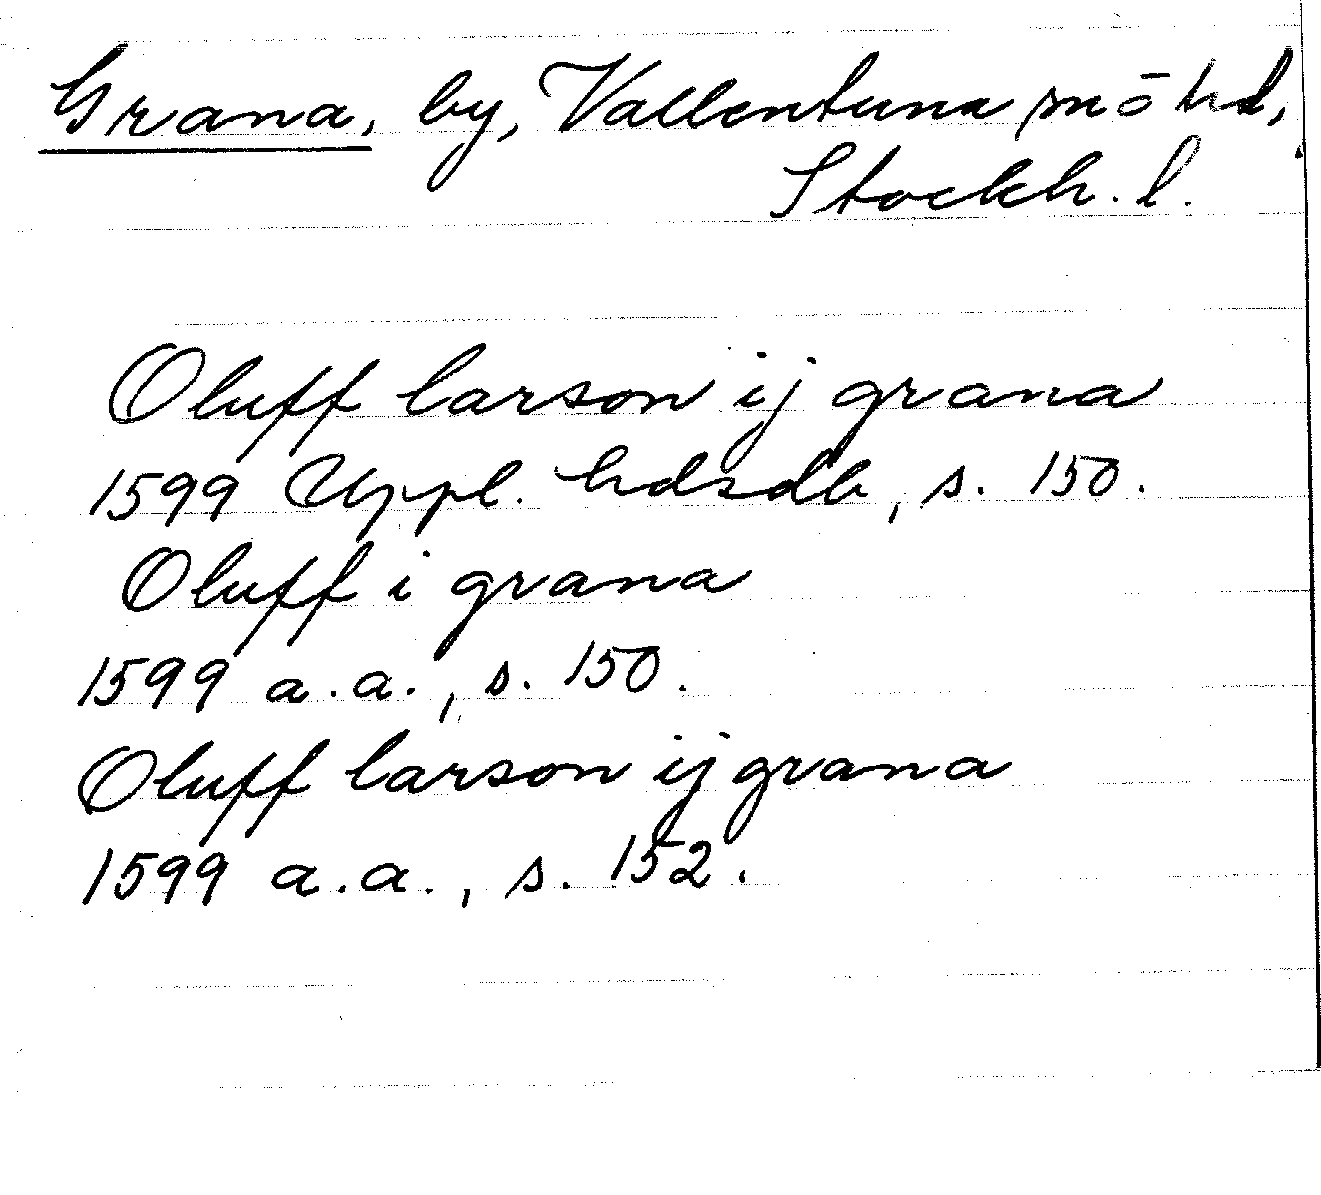 Grana, by, Vallentuna sn ō hd,
Stockh. l.
Oluff larson ij grana
1599 Uppl. hdsdb, s. 150.
Oluff i grana
1599 a.a., s. 150.
Oluff larson ij grana
1599 a.a., s. 152.